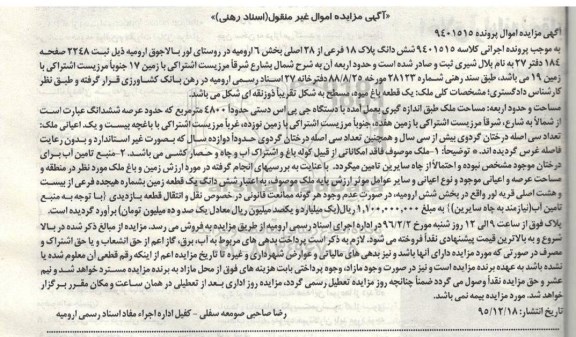 «آگهی مزایده اموال غیر منقول(اسناد رهنی)»
آگهی مزایده اموال پرونده ۹۴۰۱۵۱۵
به موجب پرونده اجرائی کلاسه ۹۴۰۱۵۱۵ شش دانگ پلاک ۱۸ فرعی از ۲۸ اصلی بخش ۶ ارومیه در روستای لور بالاجوق ارومیه ذیل ثبت ۲۲۴۸ صفحه
۱۸۴ دفتر ۲۷ به نام بلال شیری ثبت و صادر شده است و حدود اربعه آن به شرح شمال بشارع شرقاً مرزیست اشتراکی با زمین ۱۷ جنوباً مرزیست اشتراکی با
زمین ۱۹ می باشد، طبق سند رهنی شماره ۲۸۱۲۳ مورخه ۸۸/۸/۲۵ دفترخانه ۲۷ اسناد رسمی ارومیه در رهن بانک کشاورزی قرار گرفته و طبق نظر
کارشناس دادگستری: مشخصات کلی ملک: یک قطعه باغ میوه، مسطح به شکل تقریباً ذوزنقه ای شکل می باشد.
مساحت و حدود اربعه: مساحت ملک طبق اندازه گیری بعمل آمده با دستگاه جی پی اس دستی حدوداً ۴۸۰۰ مترمربع که حدود عرصه ششدانگ عبارت است
از شمالاً به شارع، شرقاً مرزیست اشتراکی با زمین هفده، جنوباً مرزیست اشتراکی با زمین نوزده، غرباً مرزیست اشتراکی با باغچه بیست و یک. اعیانی ملک:
تعداد سی اصله درختان گردوی بیش از سی سال و همچنین تعداد سی اصله درختان گردوی حدوداً دوازده سال که بصورت غیر استاندارد و بدون رعایت
فاصله غرس گردیده اند. * توضیحاً: ۱- ملک موصوف فاقد امکاناتی از قبیل کوله باغ و اشتراک آب و چاه و حصار کشی می باشد. ۲- منبع تامین آب برای
درختان موجود مشخص نبوده و احتمالاً از چاه سایرین تامین میگردد. با عنایت به بررسیهای انجام گرفته در مورد ارزش زمین و باغ ملک مورد نظر در منطقه و
مساحت عرصه و اعیانی موجود و نوع اعیانی و سایر عوامل موثر ارزش پایه ملک موصوف، به اعتبار شش دانگ یک قطعه زمین بشماره هیجده فرعی از بیست
و هشت اصلی قریه لور واقع در بخش شش ارومیه، در صورت عدم وجود هر گونه ممانعت قانونی در خصوص نقل و انتقال قطعه بازدیدی (با توجه به منبع
تامین آب(نیازمند به چاه سایرین)) به مبلغ ۱,۱۰۰,۰۰۰,۰۰۰ ریال(یک میلیارد و یکصد میلیون ریال معادل یک صد و ده میلیون تومان) برآورد گردیده است.
پلاک فوق از ساعت ۹ الی ۱۲ روز شنبه مورخ ۹۶/۲/۲ در اداره اجرای اسناد رسمی ارومیه از طریق مزایده به فروش می رسد. مزایده از مبالغ ذکر شده در بالا
شروع و به بالاترین قیمت پیشنهادی نقداً فروخته می شود. لازم به ذکر است پرداخت بدهی های مربوط به آب، برق، گاز اعم از حق انشعاب و یا حق اشتراک و
مصرف در صورتی که مورد مزایده دارای آنها باشد و نیز بدهی های مالیاتی و عوارض شهرداری و غیره تا تاریخ مزایده اعم از اینکه رقم قطعی آن معلوم شده یا
نشده باشد به عهده برنده مزایده است و نیز در صورت وجود مازاد، وجوه پرداختی بابت هزینه های فوق از محل مازاد به برنده مزایده مسترد خواهد شد و نیم
عشر و حق مزایده نقداً وصول می گردد ضمناً چنانچه روز مزایده تعطیل رسمی گردد، مزایده روز اداری بعد از تعطیلی در همان ساعت و مکان مقرر برگزار
خواهد شد. مورد مزایده بیمه نمی باشد.
تاریخ انتشار: ۹۵/۱۲/۱۸
رضا صاحبی صومعه سفلی - کفیل اداره اجراء مفاد اسناد رسمی ارومیه